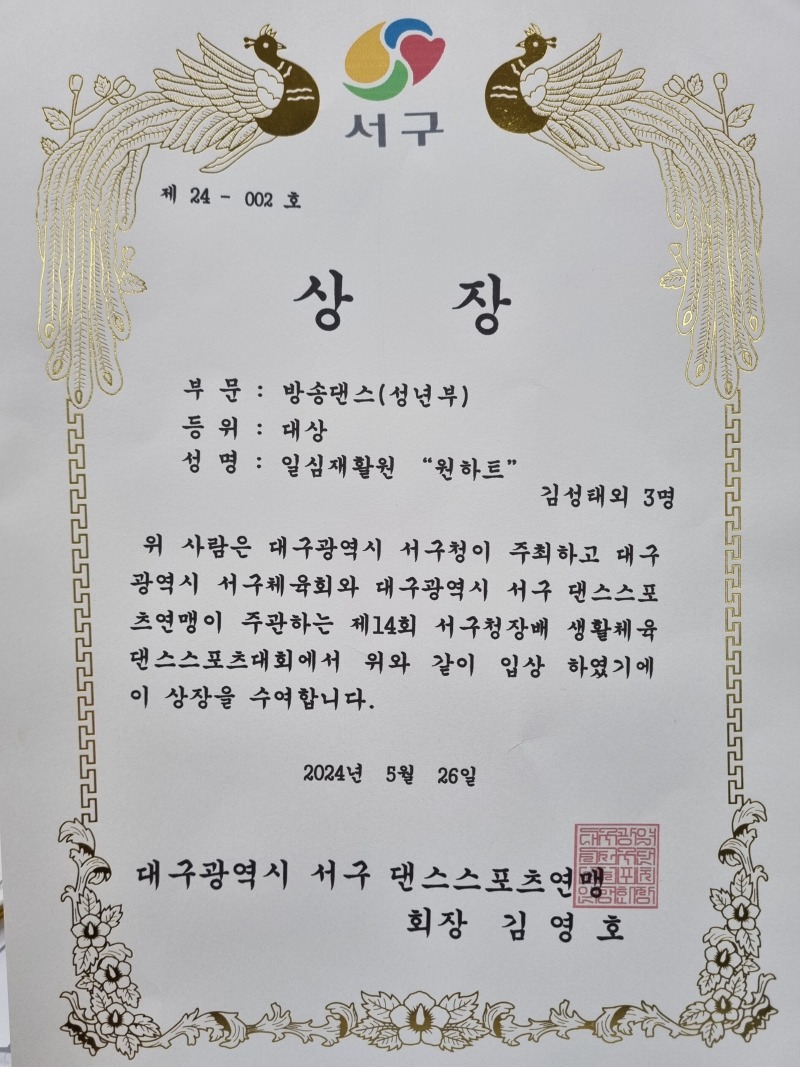 서구
제 24 - 002 호
상 장
부 문 : 방송댄스(성년부)
등 위 : 대상
성 명 : 일심재활원 “원하트”
김성태외 3명
위 사람은 대구광역시 서구청이 주최하고 대구
광역시 서구체육회와 대구광역시 서구 댄스스포
츠연맹이 주관하는 제14회 서구청장배 생활체육
댄스스포츠대회에서 위와 같이 입상 하였기에
이 상장을 수여합니다.
2024년 5월 26일
대구광역시 서구 댄스스포츠연맹
회장 김영호